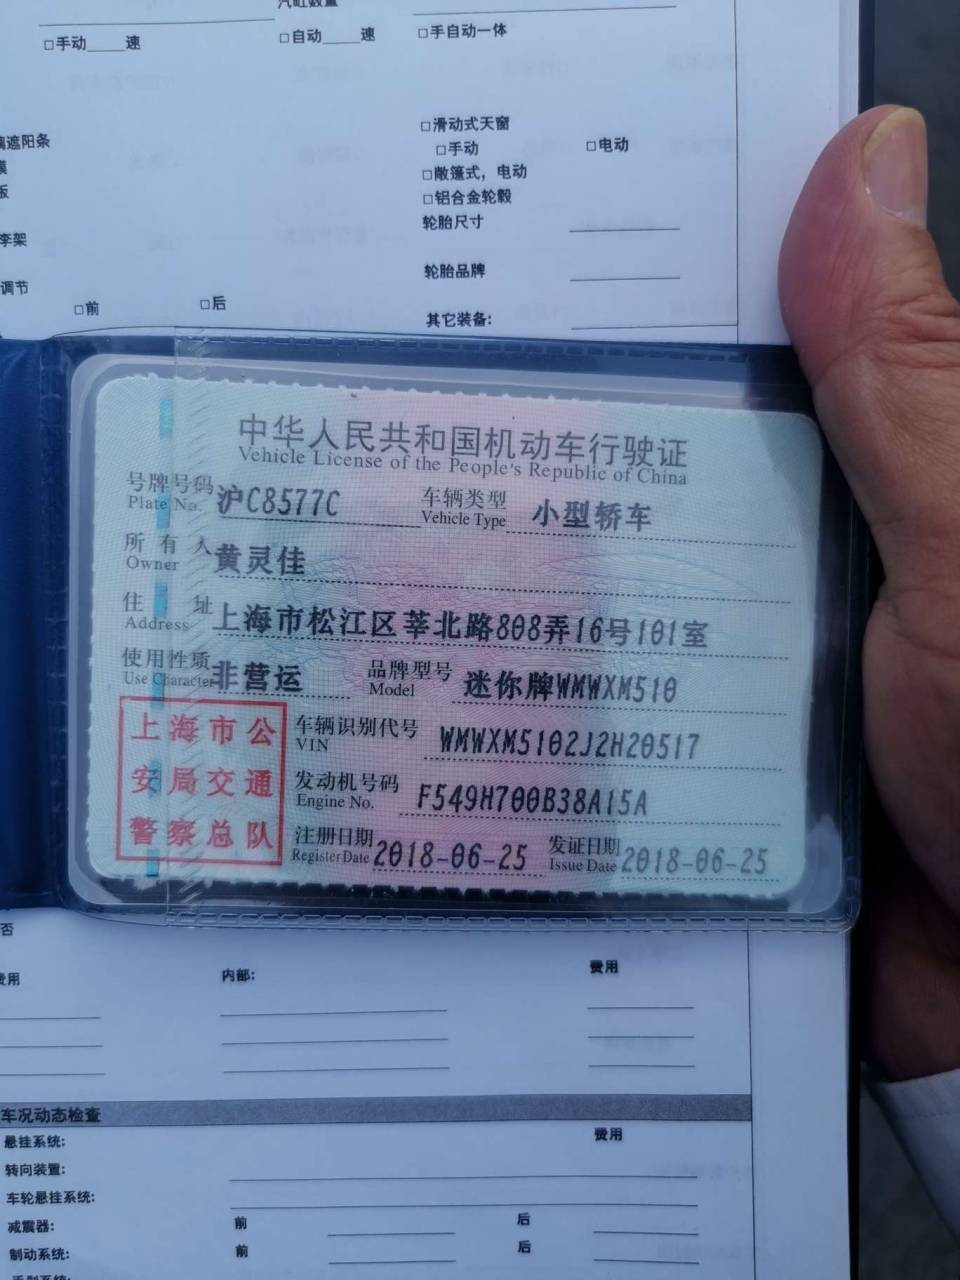 汽缸数量
□手动____速 □自动____速 □手自动一体
遮阳条 □滑动式天窗
□手动 □电动
□敞篷式，电动
□铝合金轮毂
轮胎尺寸
李架
轮胎品牌
调节
□前 □后
其它装备:
中华人民共和国机动车行驶证
Vehicle License of the People's Republic of China
号牌号码 沪C8577C 车辆类型 小型轿车
Plate No. Vehicle Type
所有人 黄灵佳
Owner
住址 上海市松江区莘北路808弄16号101室
Address
使用性质 非营运 品牌型号 迷你牌WMWXM510
Use Character Model
上海市公
安局交通
警察总队
车辆识别代号 WMWXM5102J2H20517
VIN
发动机号码 F549H700B38A15A
Engine No.
注册日期 2018-06-25 发证日期 2018-06-25
Register Date Issue Date
否
费用 内部: 费用
车况动态检查
悬挂系统: 费用
转向装置:
车轮悬挂系统:
减震器: 前 后
制动系统: 前 后